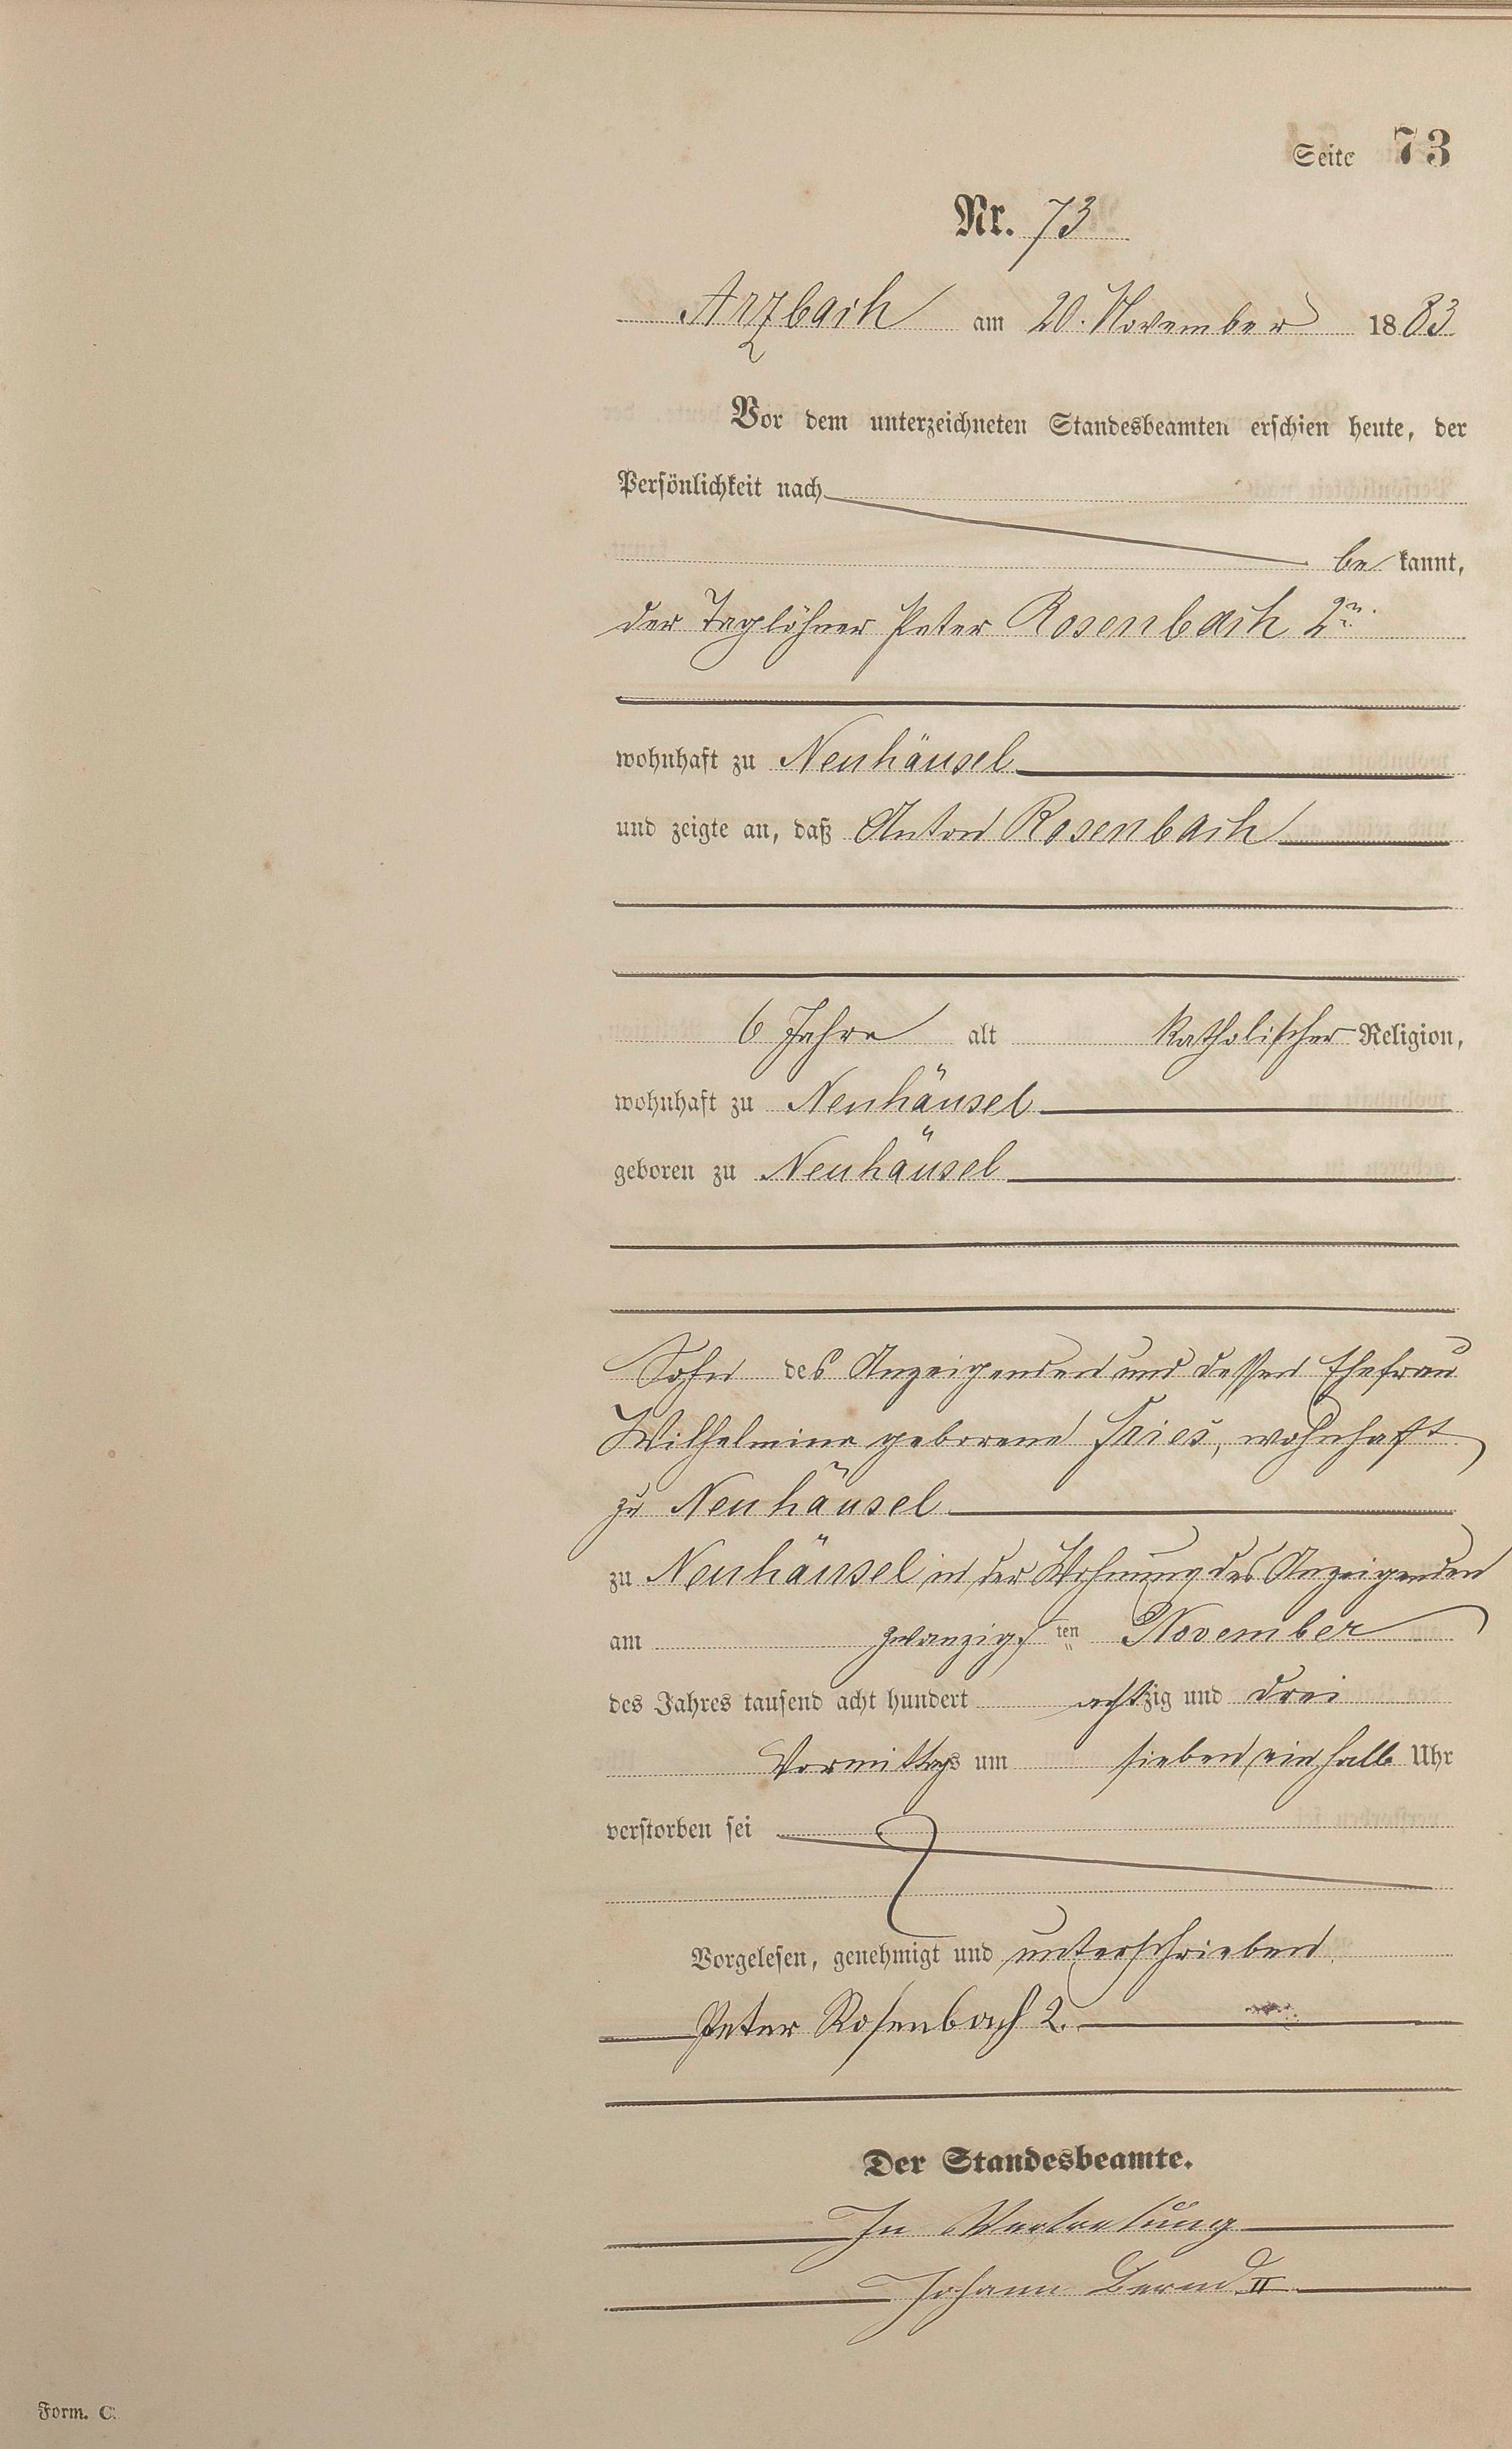 Seite 73
Nr. 73
Arzbach am 20. November 1883
Vor dem unterzeichneten Standesbeamten erschien heute, der
Persönlichkeit nach
be kannt,
der Taglöhner Peter Rosenbach 2r.
wohnhaft zu Neuhäusel
und zeigte an, daß Anton Rosenbach
6 Jahre alt katholischer Religion,
wohnhaft zu Neuhäusel
geboren zu Neuhäusel
Sohn des Anzeigenden und dessen Ehefrau
Wilhelmine geborene Fries, wohnhaft
zu Neuhäusel
zu Neuhäusel in der Wohnung des Anzeigenden
am zwanzigsten November
des Jahres tausend acht hundert achtzig und drei
Vormittags um sieben einhalb Uhr
verstorben sei
Vorgelesen, genehmigt und unterschrieben
Peter Rosenbach 2.
Der Standesbeamte.
In Vertretung
Johann Bernd II
Form. C.